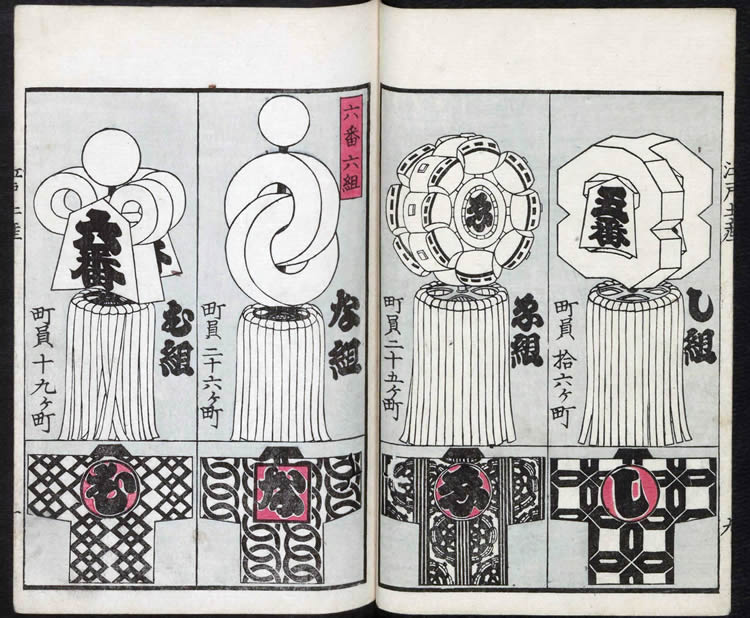 江戸土産
し組
五番
町員 拾六ヶ町
し
ゑ組
ゑ
町員二十五ヶ町
ゑ
六番六組
な組
町員二十六ヶ町
な
む組
六番
町員十九ヶ町
む